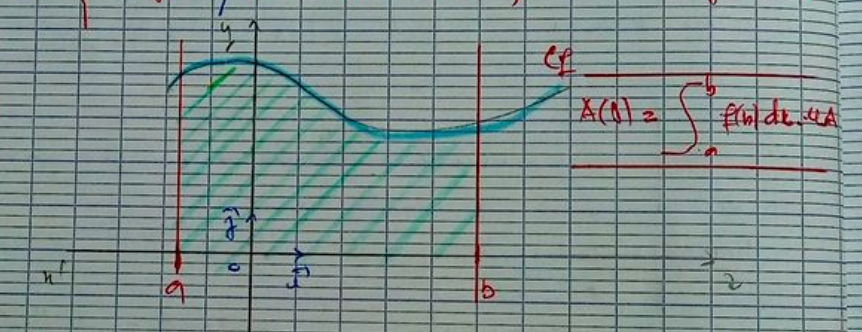 y
Cf
A(D) = ∫ₐᵇ f(x) dx . UA
j⃗
x' a o i⃗ b x